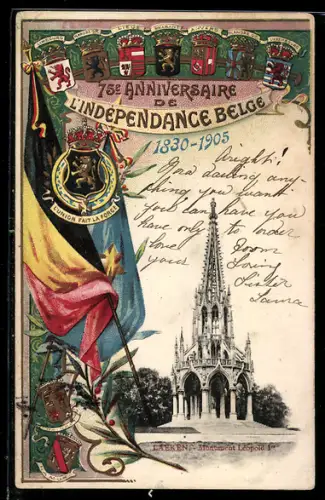 LIÈGE
BRABANT
75E ANNIVERSAIRE
DE
L'INDÉPENDANCE BELGE
1830-1905
L'UNION FAIT LA FORCE
Alright!
darling any-
thing you want
you can have you
have only to order
love from
your Loving
Sister
Laura
LAEKEN. - Monument Léopold Ier